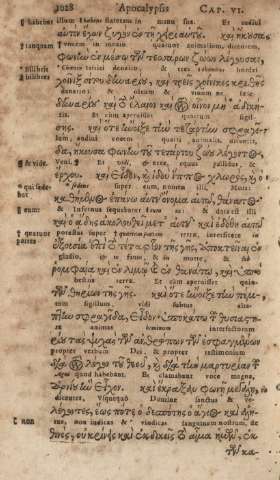 1028 Apocalypsis CAP. VI.
habebat illum habebat stateram in manu sua. Et audivi
αὐτὸν ἔχων ζυγὸν ἐν τῇ χειρὶ αὐτοῦ. καὶ ἤκουσα
tanquam vocem in medio quatuor animalium, dicentem,
φωνὴν ἐν μέσῳ τῶν τεσσάρων ζώων λέγουσαν,
bilibris tritici denario & tres hordei
χοῖνιξ σίτου δηναρίου, καὶ τρεῖς χοίνικες κριθῆς
denario: & oleum & vinum ne
δηναρίου· καὶ τὸ ἔλαιον καὶ τὸν οἶνον μὴ ἀδική-
Et cum aperuisset sigil-
σῃς. καὶ ὅτε ἤνοιξε τὴν τετάρτην σφραγῖ-
lum, audivi vocem quarti animalis, dicentis,
δα, ἤκουσα φωνὴν τοῦ τετάρτου ζώου λέγουσαν,
& vide. Veni & Et & ecce equus pallidus,
ἔρχου. καὶ εἶδον, καὶ ἰδοὺ ἵππος χλωρός, καὶ ὁ
qui sede- super eum, nomen illi, Mors:
bat καθήμενος ἐπάνω αὐτοῦ ὄνομα αὐτῷ, θάνατος·
eum: & infernus sequebatur & data est illi
καὶ ὁ ᾅδης ἀκολουθεῖ μετ' αὐτοῦ· καὶ ἐδόθη αὐτῷ
quatuor potestas super terrae, interficere in
partes ἐξουσία ἐπὶ τὸ τέταρτον τῆς γῆς, ἀποκτεῖναι ἐν
gladio, in fame, & in morte, & a
ῥομφαίᾳ καὶ ἐν λιμῷ καὶ ἐν θανάτῳ, καὶ ὑπὸ
bestiis terrae. Et cum aperuisset quin-
τῶν θηρίων τῆς γῆς. καὶ ὅτε ἤνοιξε τὴν πέμ-
tum sigillum, vidi subtus
πτην σφραγῖδα, εἶδον ὑποκάτω τοῦ θυσιαστη-
animas interfectorum
ρίου τὰς ψυχὰς τῶν ἀνθρώπων τῶν ἐσφαγμένων
propter verbum Dei & propter testimonium
διὰ τὸν λόγον τοῦ θεοῦ, καὶ διὰ τὴν μαρτυρίαν
quod habebant. Et clamabant voce magna,
ἣν εἶχον. καὶ ἔκραξαν φωνῇ μεγάλῃ,
dicentes, Usquequo Domine sanctus & ve-
λέγοντες, ἕως πότε ὁ δεσπότης ὁ ἅγιος καὶ ἀλη-
non rus, non iudicas & vindicas sanguinem nostrum, de
θινός, οὐ κρίνεις καὶ ἐκδικεῖς τὸ αἷμα ἡμῶν, ἐκ
τῶν κα-